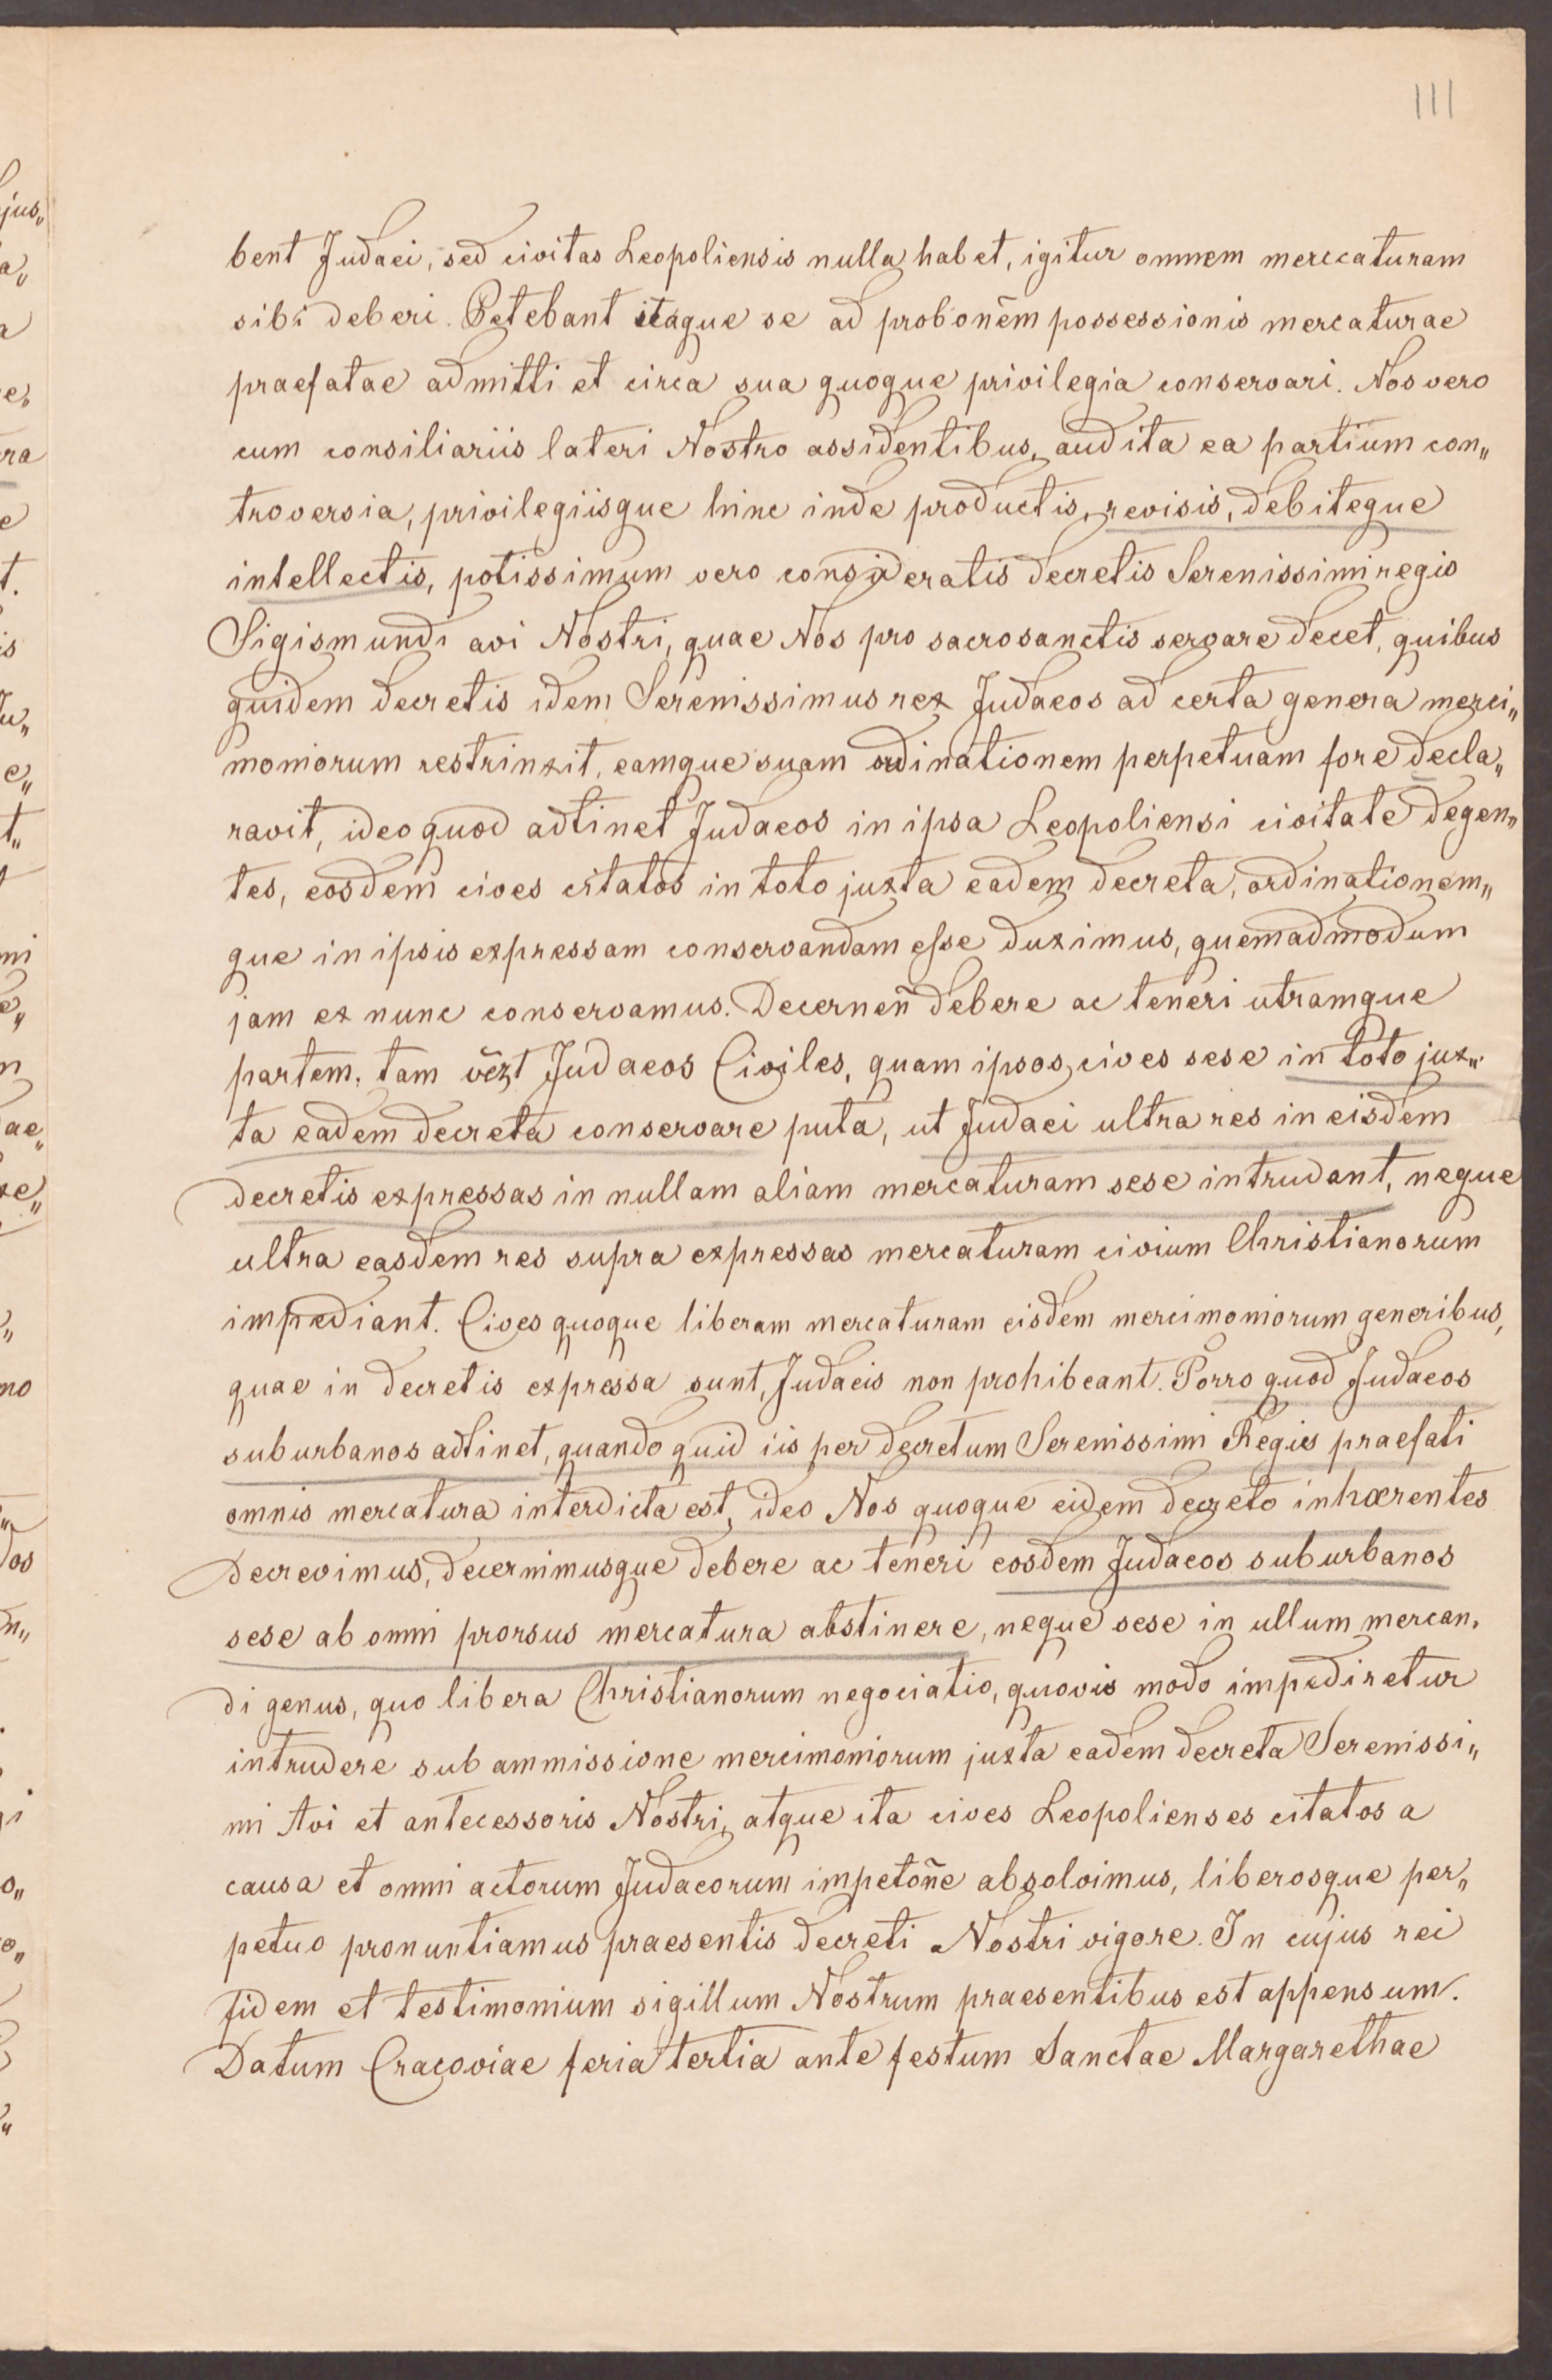 111
bent Judaei, sed civitas Leopoliensis nulla habet, igitur omnem merccaturam
sibi deberi. Petebant itaque se ad probonẽm possessionis mercaturae
praefatae admitti et circa sua quoque privilegia conservari. Nos vero
cum consiliariis lateri Nostro assidentibus, audita ea partium con„
troversia, privilegiisque hinc inde productis, revisis, debiteque
intellectis, potissimum vero consideratis decretis Serenissimi regis
Sigismundi avi Nostri, quae Nos pro sacrosanctis servare decet, quibus
quidem decretis idem Serenissimus rex Judaeos ad certa genera merci„
moniorum restrinxit, eamque suam ordinationem perpetuam fore decla„
ravit, ideo quod adtinet Judaeos in ipsa Leopoliensi civitate degen„
tes, eosdem cives citatos in toto juxta eadem decreta, ordinationem„
que in ipsis expressam conservandam esse duximus, quemadmodum
jam ex nunc conservamus. Decerneñ debere ac teneri utramque
partem, tam vẽzt Judaeos Civiles, quam ipsos cives sese in toto jux„
ta eadem decreta conservare puta, ut Judaei ultra res in eisdem
decretis expressas in nullam aliam mercaturam sese intrudant, neque
ultra easdem res supra expressas mercaturam civium Christianorum
impediant. Cives quoque liberam mercaturam eisdem mercimoniorum generibus,
quae in decretis expressa sunt, Judaeis non prohibeant. Porro quod Judaeos
suburbanos adtinet, quando quid iis per decretum Serenissimi Regis praefati
omnis mercatura interdicta est, ideo Nos quoque eidem decreto inhærentes
Decrevimus, decernimusque debere ac teneri eosdem Judaeos suburbanos
sese ab omni prorsus mercatura abstinere, neque sese in ullum mercan„
di genus, quo libera Christianorum negociatio, quovis modo impediretur
intrudere sub ammissione mercimoniorum juxta eadem decreta Serenissi„
mi Avi et antecessoris Nostri, atque ita cives Leopolienses citatos a
causa et omni actorum Judaeorum impetoñe absolvimus, liberosque per„
petuo pronuntiamus praesentis decreti Nostri vigore. In cujus rei
fidem et testimonium sigillum Nostrum praesentibus est appensum.
Datum Cracoviae feria tertia ante festum Sanctae Margarethae